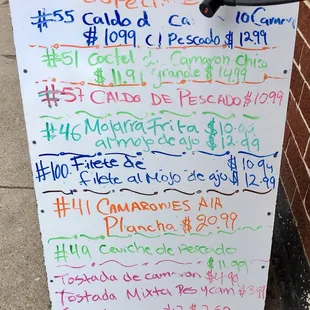 #55 Caldo d Ca 10 Camaro
$1099 C/ Pescado $1299
#51 Coctel d. Camaron Chico
$11.91 grande $1499
#57 CALDO DE PESCADO $1099
#46 Mojarra Frita $10.99
al mojo de ajo $12.99
#100. Filete de $10.99
filete al Mojo de ajo $12.99
#41 CAMARONES A LA
Plancha $20.99
#49 Ceviche de Pescado
$11.99
Tostada de camaron $4.90
Tostada Mixta Pes y cam $3.99